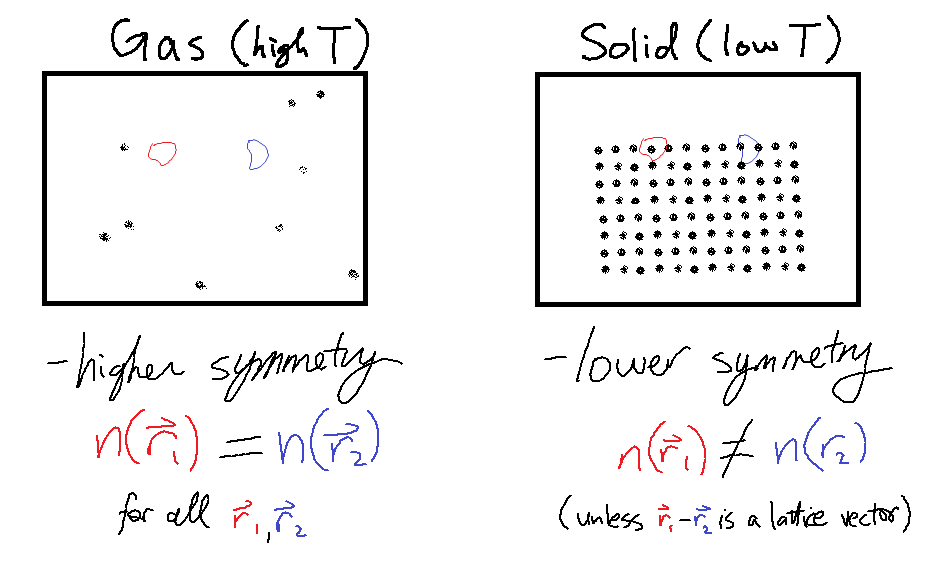 Gas (high T)
-higher symmetry
n(r⃗₁) = n(r⃗₂)
for all r⃗₁, r⃗₂
Solid (low T)
-lower symmetry
n(r⃗₁) ≠ n(r₂)
(unless r⃗₁-r⃗₂ is a lattice vector)